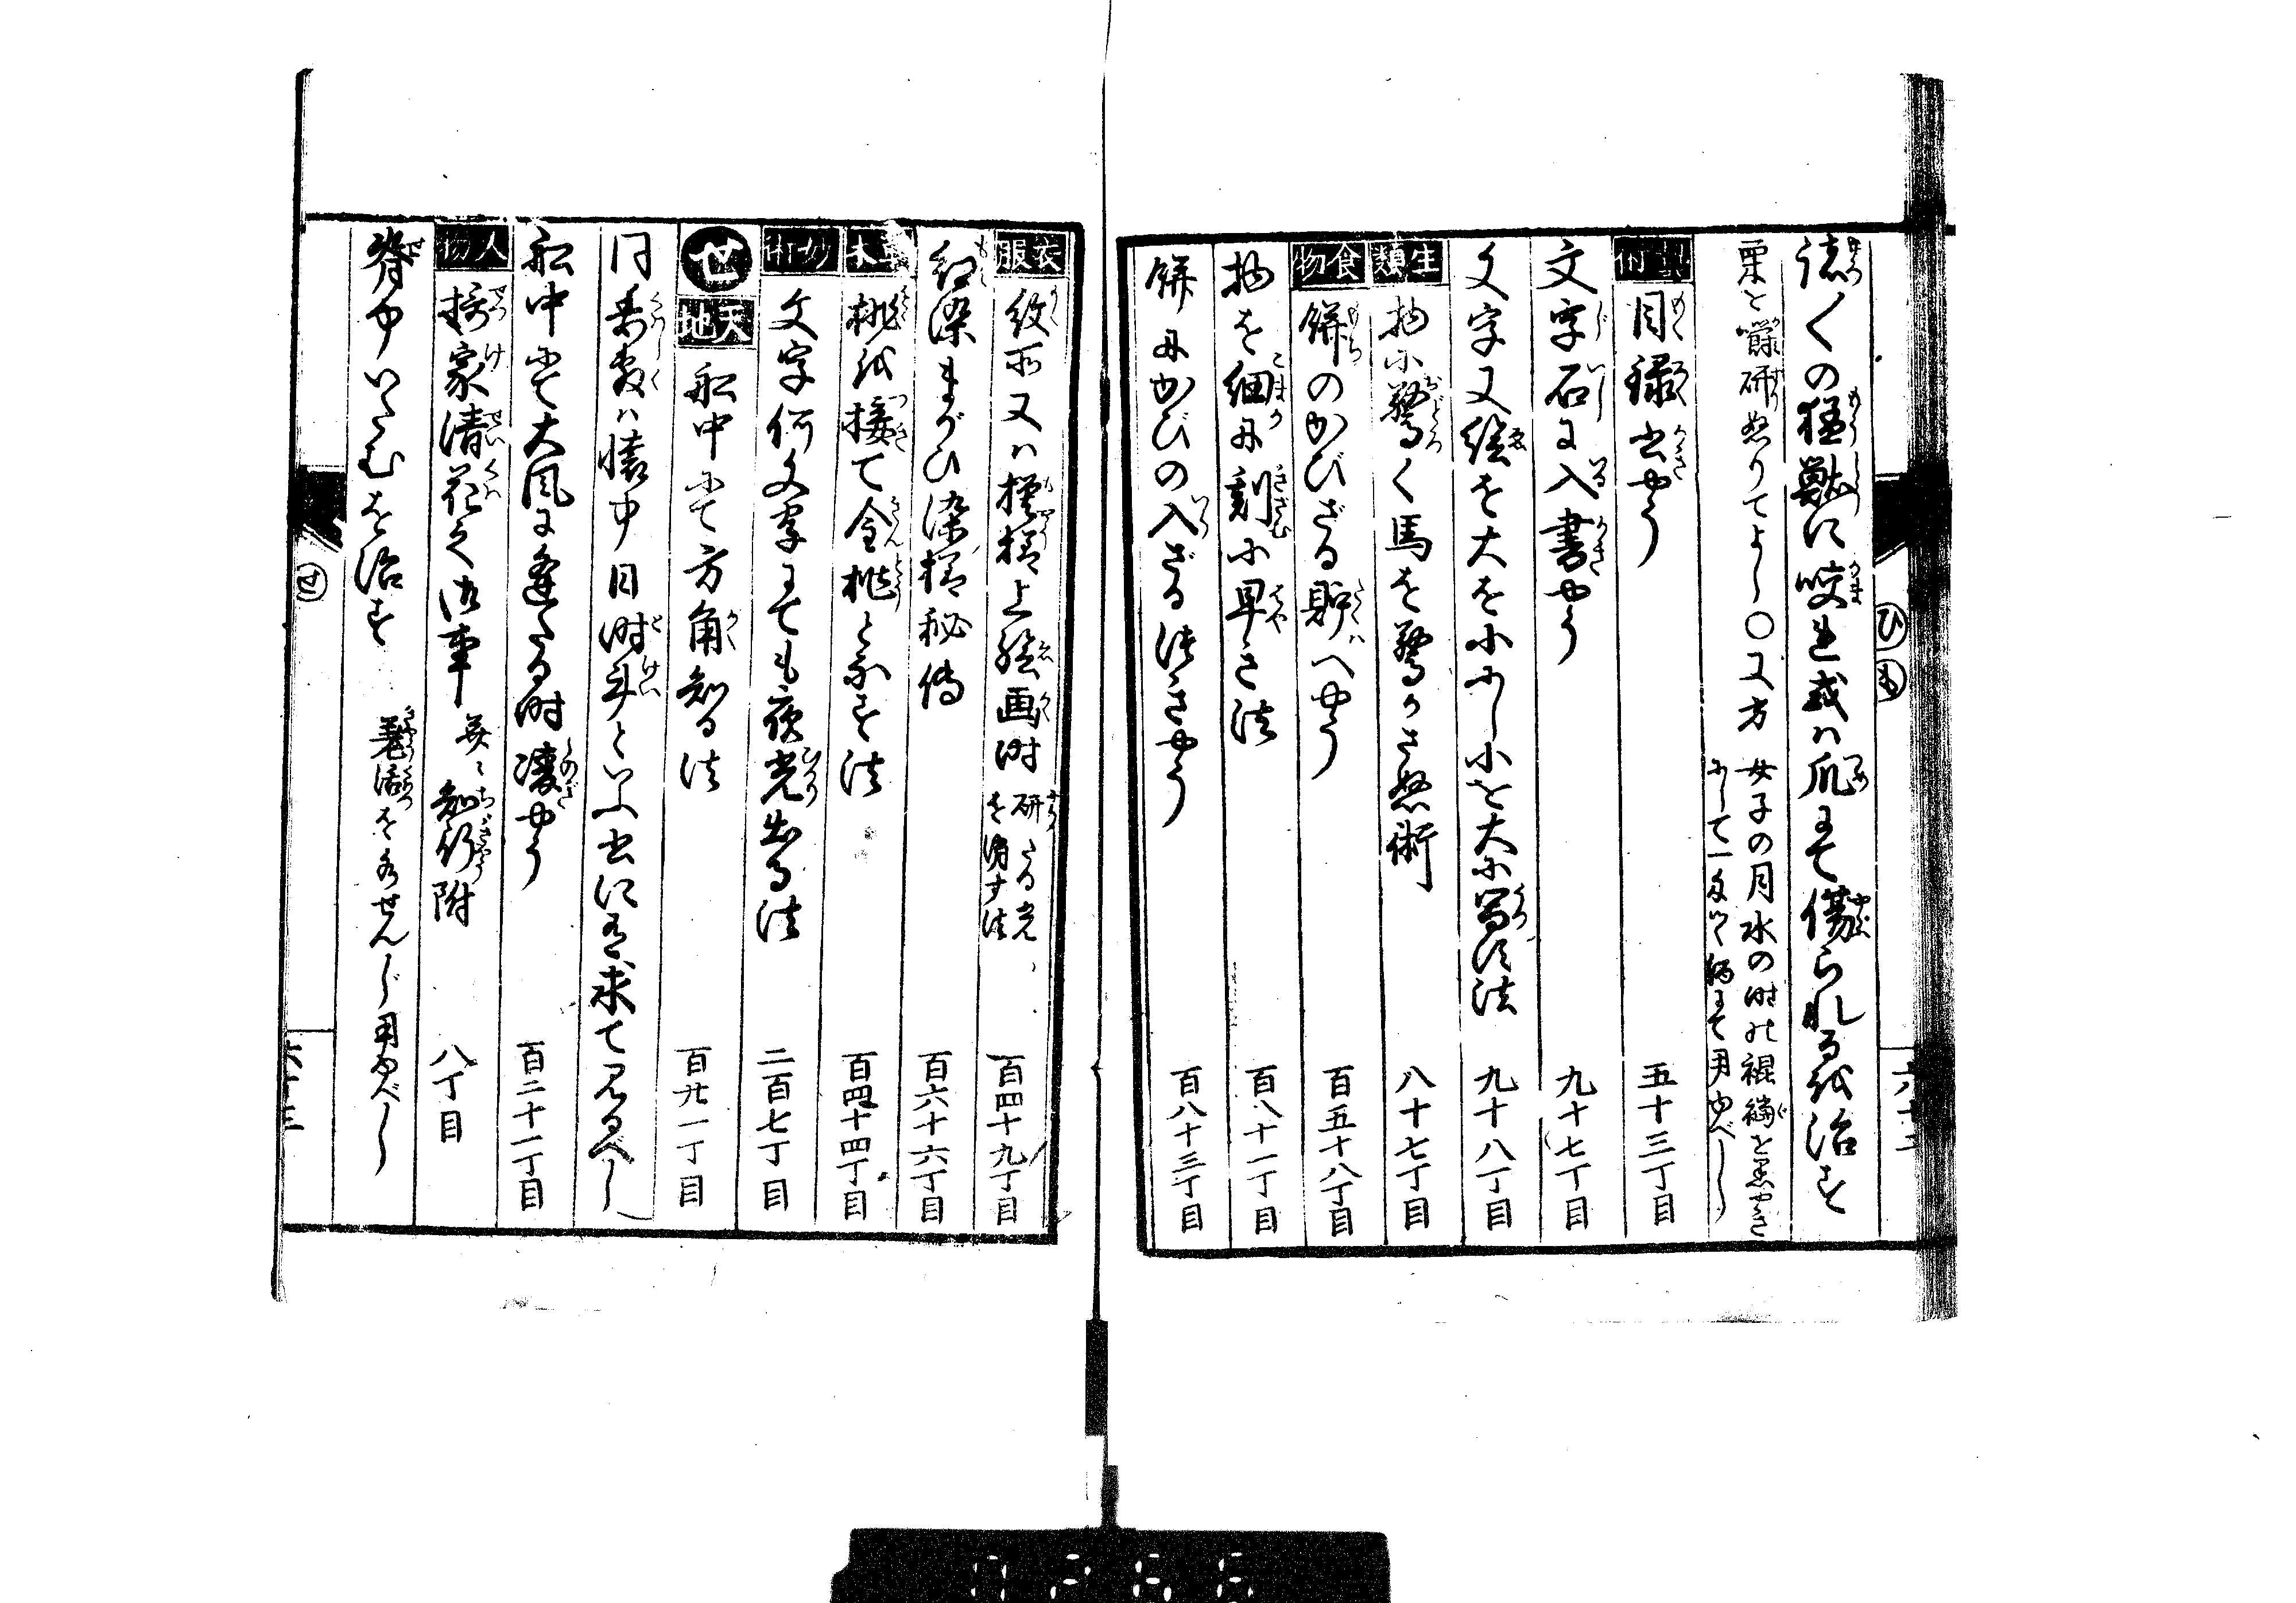 諸〱の猛獣に咬れ或ハ爪にて傷られたるを治す
栗を嚼研ぬりてよし〇又方
女子の月水の時の褌襠を黒やき
にして一匁づゝ酒にて用ゆべし
ひ
も
目録書やう 五十三丁目
文字石に入書やう 九十七丁目
文字又絵を大を小にし小を大に写す法 九十八丁目
生類
物に驚く馬を驚かさぬ術 八十七丁目
食物
餅のかびざる貯へやう 百五十八丁目
物を細に刻に早き法 百八十一丁目
餅にかびの入ざる法きやう 百八十三丁目
衣服
紋所又ハ模様上絵画時
研たる光
を消す法
百四十九丁目
紅染まがひ染様秘傳 百六十六丁目
草木
桃を接て金桃となす法 百四十四丁目
妙術
文字何文字にても夜光出る法 二百七丁目
せ
天地
舩中にて方角知る法 百廿一丁目
同委敷ハ懐中日時斗といふ書に有求て見るべし
舩中にて大風に逢たる時凌やう 百二十一丁目
人物
摂家清花之御事
并ニ知行附
八丁目
脊中いたむを治す
羗活を水せんじ用ゆべし
せ
六十三